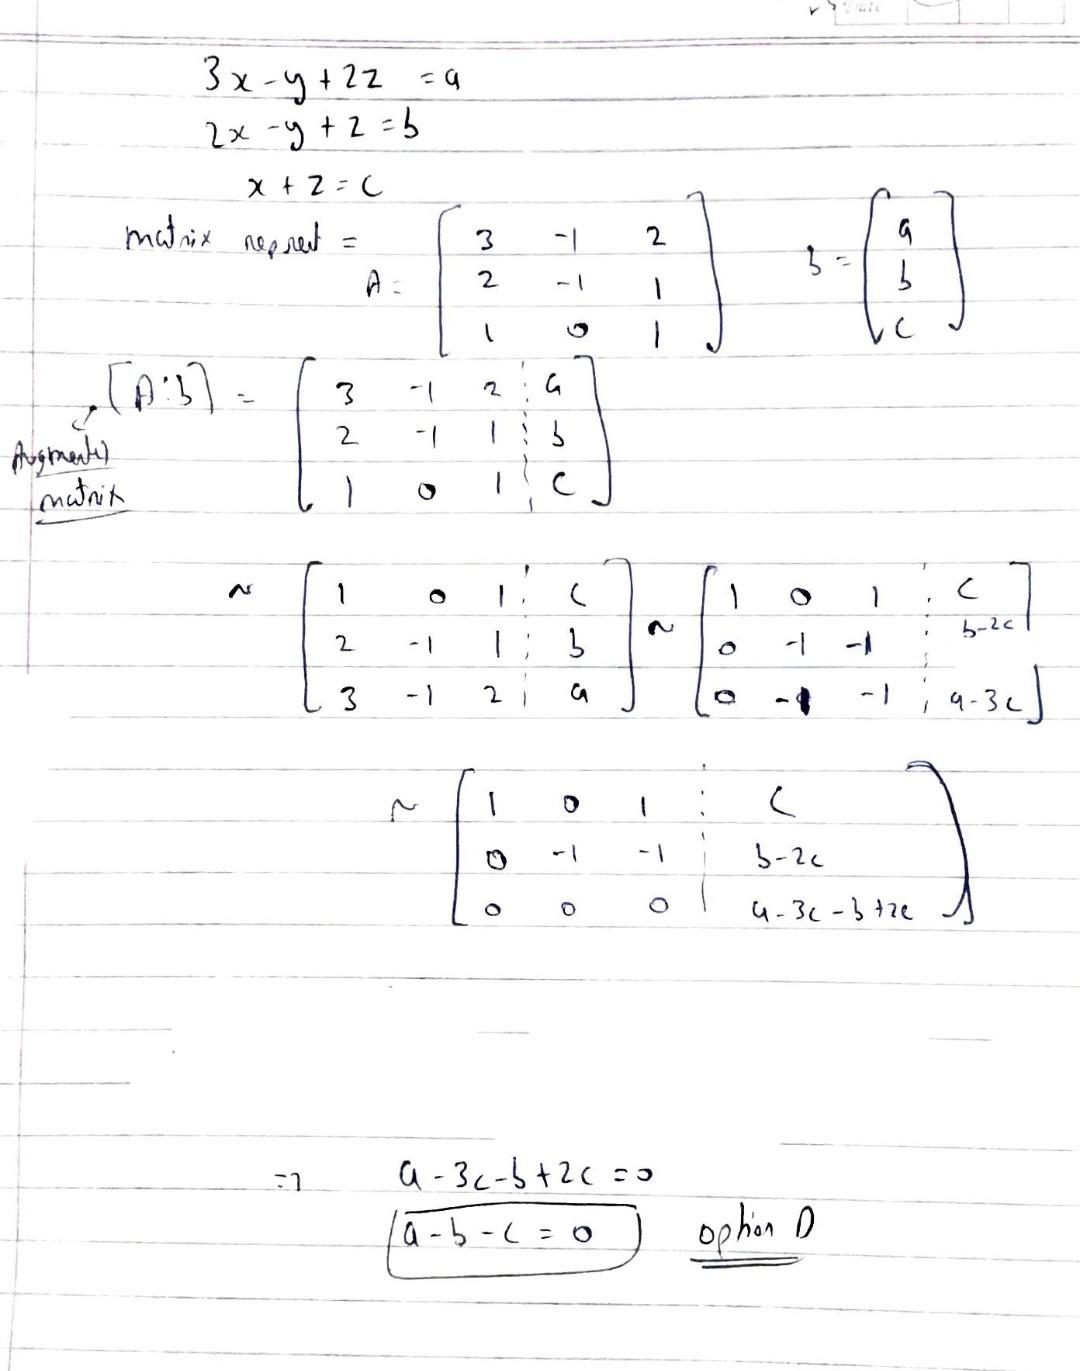 Date
3x - y + 2z = a
2x - y + z = b
x + z = c
matrix represent =
A = [ 3 -1 2
2 -1 1
1 0 1 ]
b = [ a
b
c ]
[A:b] = [ 3 -1 2 : a
2 -1 1 : b
1 0 1 : c ]
Augmented
matrix
~ [ 1 0 1 : c
2 -1 1 : b
3 -1 2 : a ]
~ [ 1 0 1 : c
0 -1 -1 : b-2c
0 -1 -1 : a-3c ]
~ [ 1 0 1 : c
0 -1 -1 : b-2c
0 0 0 : a-3c-b+2c ]
=> a-3c-b+2c = 0
a-b-c = 0 option D